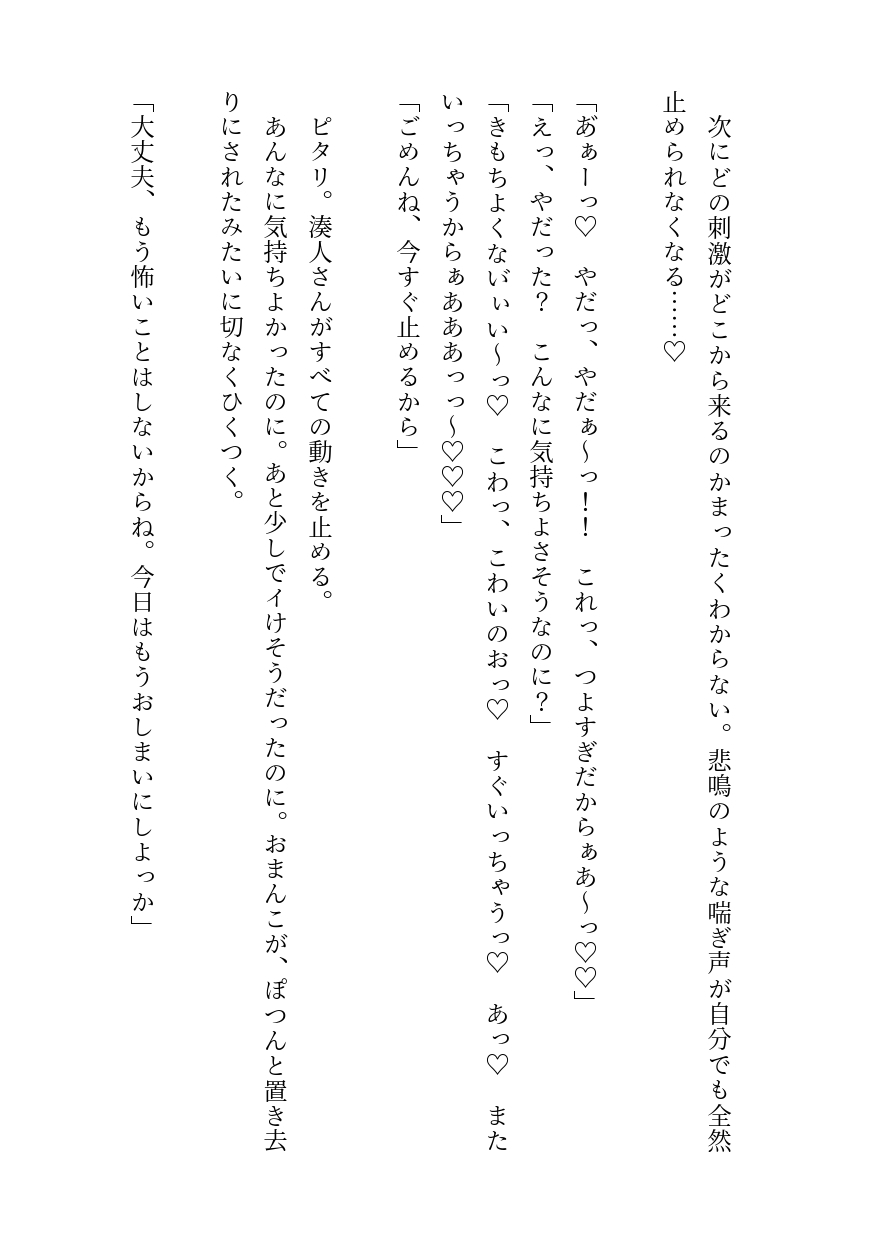 次にどの刺激がどこから来るのかまったくわからない。悲鳴のような喘ぎ声が自分でも全然
止められなくなる……♡
「あ゙ぁーっ♡　やだっ、やだぁ～っ！！　これっ、つよすぎだからぁあ～っ♡♡」
「えっ、やだった？　こんなに気持ちよさそうなのに？」
「きもちよくない゙ぃぃ～っ♡　こわっ、こわいのおっ♡　すぐいっちゃうっ♡　あっ♡　また
いっちゃうからぁあああっっ～♡♡♡」
「ごめんね、今すぐ止めるから」
　ピタリ。湊人さんがすべての動きを止める。
　あんなに気持ちよかったのに。あと少しでイけそうだったのに。おまんこが、ぽつんと置き去
りにされたみたいに切なくひくつく。
「大丈夫、もう怖いことはしないからね。今日はもうおしまいにしよっか」